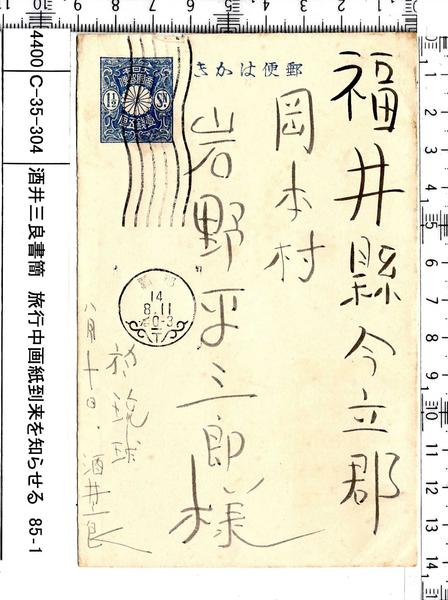 福井縣今立郡
岡本村
岩野平三郎様
郵便はがき
14
8.11
於琉球
八月十日. 酒井三良
4400 C-35-304 酒井三良書簡 旅行中画紙到来を知らせる 85-1